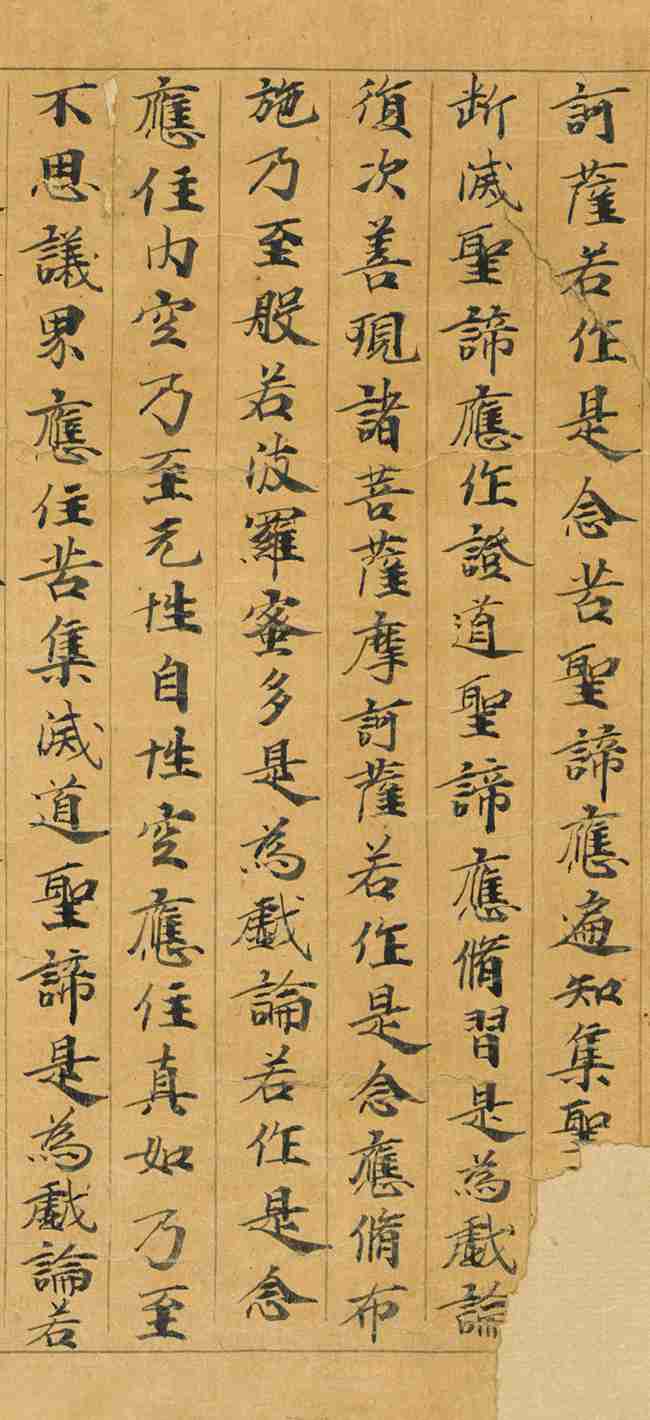 訶薩若作是念苦聖諦應遍知集聖
断滅聖諦應作證道聖諦應脩習是為戲論
復次善現諸菩薩摩訶薩若作是念應脩布
施乃至般若波羅蜜多是為戲論若作是念
應住内空乃至无性自性空應住真如乃至
不思議界應住苦集滅道聖諦是為戲論若